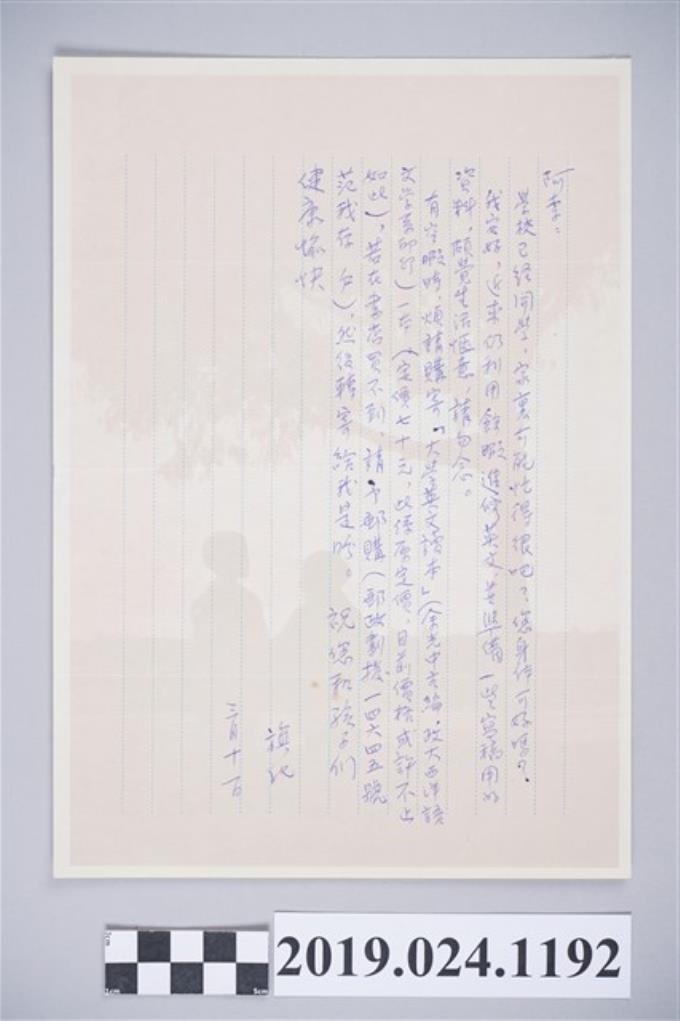 阿李：
學校已經開學，家裏可能忙得很吧？您身体可好嗎？
我安好，近來仍利用餘暇進修英文，並準備一些寫稿用的
資料，頗覺生活愜意，請勿念。
有空暇時，煩請購寄「大學英文讀本」（余光中主編，政大西洋語
文學系印行）一本（定價七十元，此係原定價，目前價格或許不止
如此），若在書店買不到，請予郵購（郵政劃撥一四六四五號
范我存戶），然後轉寄給我是盼。祝您和孩子们
健康愉快
三月十一日
2cm
1cm
5cm
2019.024.1192